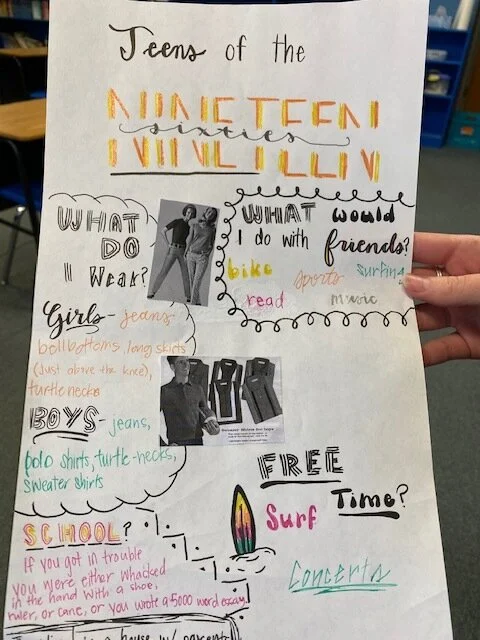 Teens of the
NINETEEN
sixties
WHAT
DO
I Wear?
Girls- jeans
bellbottoms, long skirts
(just above the knee),
turtlenecks
BOYS- jeans,
polo shirts, turtle-necks,
sweater shirts
WHAT would
I do with friends?
bike
sports
surfing
read
music
FREE
Time?
Surf
Concerts
SCHOOL?
If you got in trouble
you were either whacked
in the hand with a shoe,
ruler, or cane, or you wrote a 5000 word essay.
in a house w/ parents